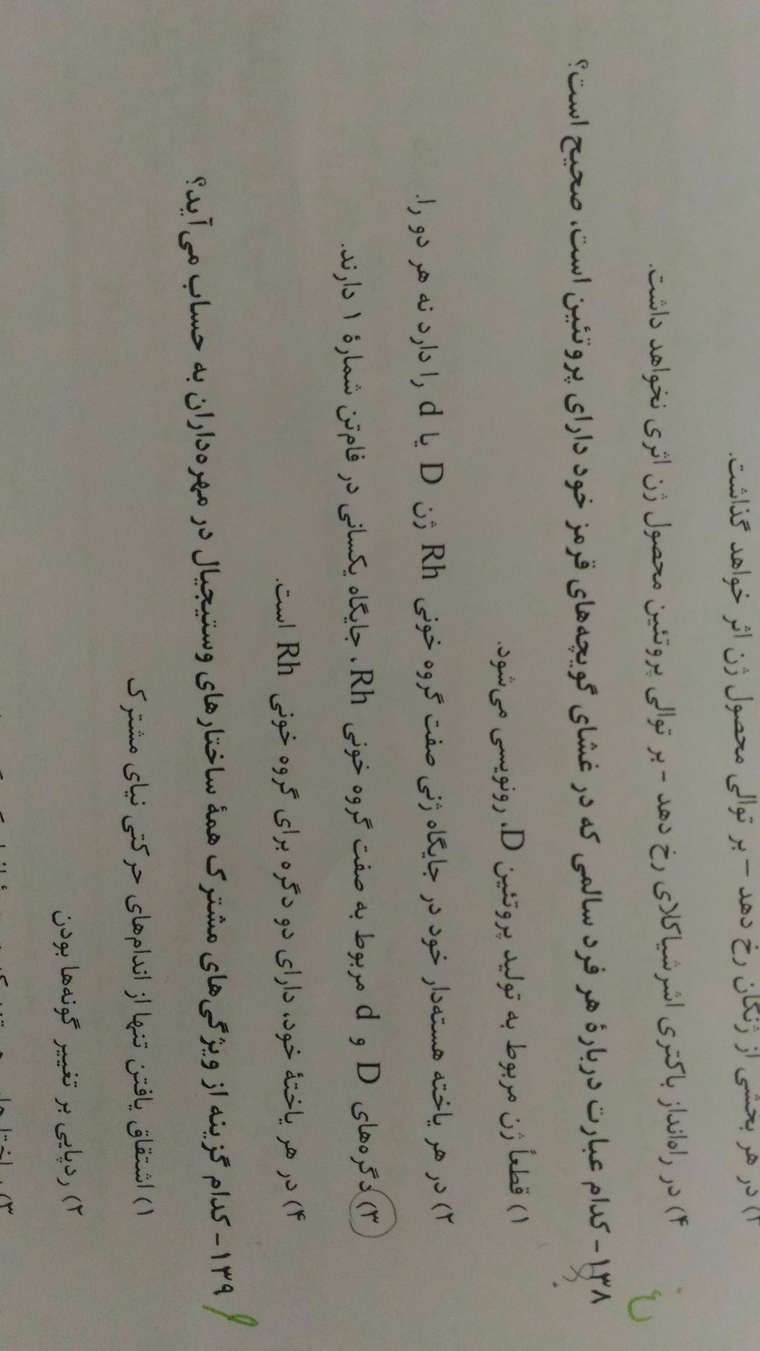 ۲) در هر بخشی از ژنگان رخ دهد – بر توالی محصول ژن اثر خواهد گذاشت.
۴) در راه‌انداز باکتری اشرشیاکلای رخ دهد - بر توالی پروتئین محصول ژن اثری نخواهد داشت.
۱۳۸- کدام عبارت دربارهٔ هر فرد سالمی که در غشای گویچه‌های قرمز خود دارای پروتئین است، صحیح است؟
۱) قطعاً ژن مربوط به تولید پروتئین D، رونویسی می‌شود.
۲) در هر یاخته هسته‌دار خود در جایگاه ژنی صفت گروه خونی Rh ژن D یا d را دارد نه هر دو را.
۳) دگره‌های D و d مربوط به صفت گروه خونی Rh، جایگاه یکسانی در فام‌تن شمارهٔ ۱ دارند.
۴) در هر یاختهٔ خود، دارای دو دگره برای گروه خونی Rh است.
۱۳۹- کدام گزینه از ویژگی‌های مشترک همهٔ ساختارهای وستیجیال در مهره‌داران به حساب می‌آید؟
۱) اشتقاق یافتن تنها از اندام‌های حرکتی نیای مشترک
۲) ردپایی بر تغییر گونه‌ها بودن